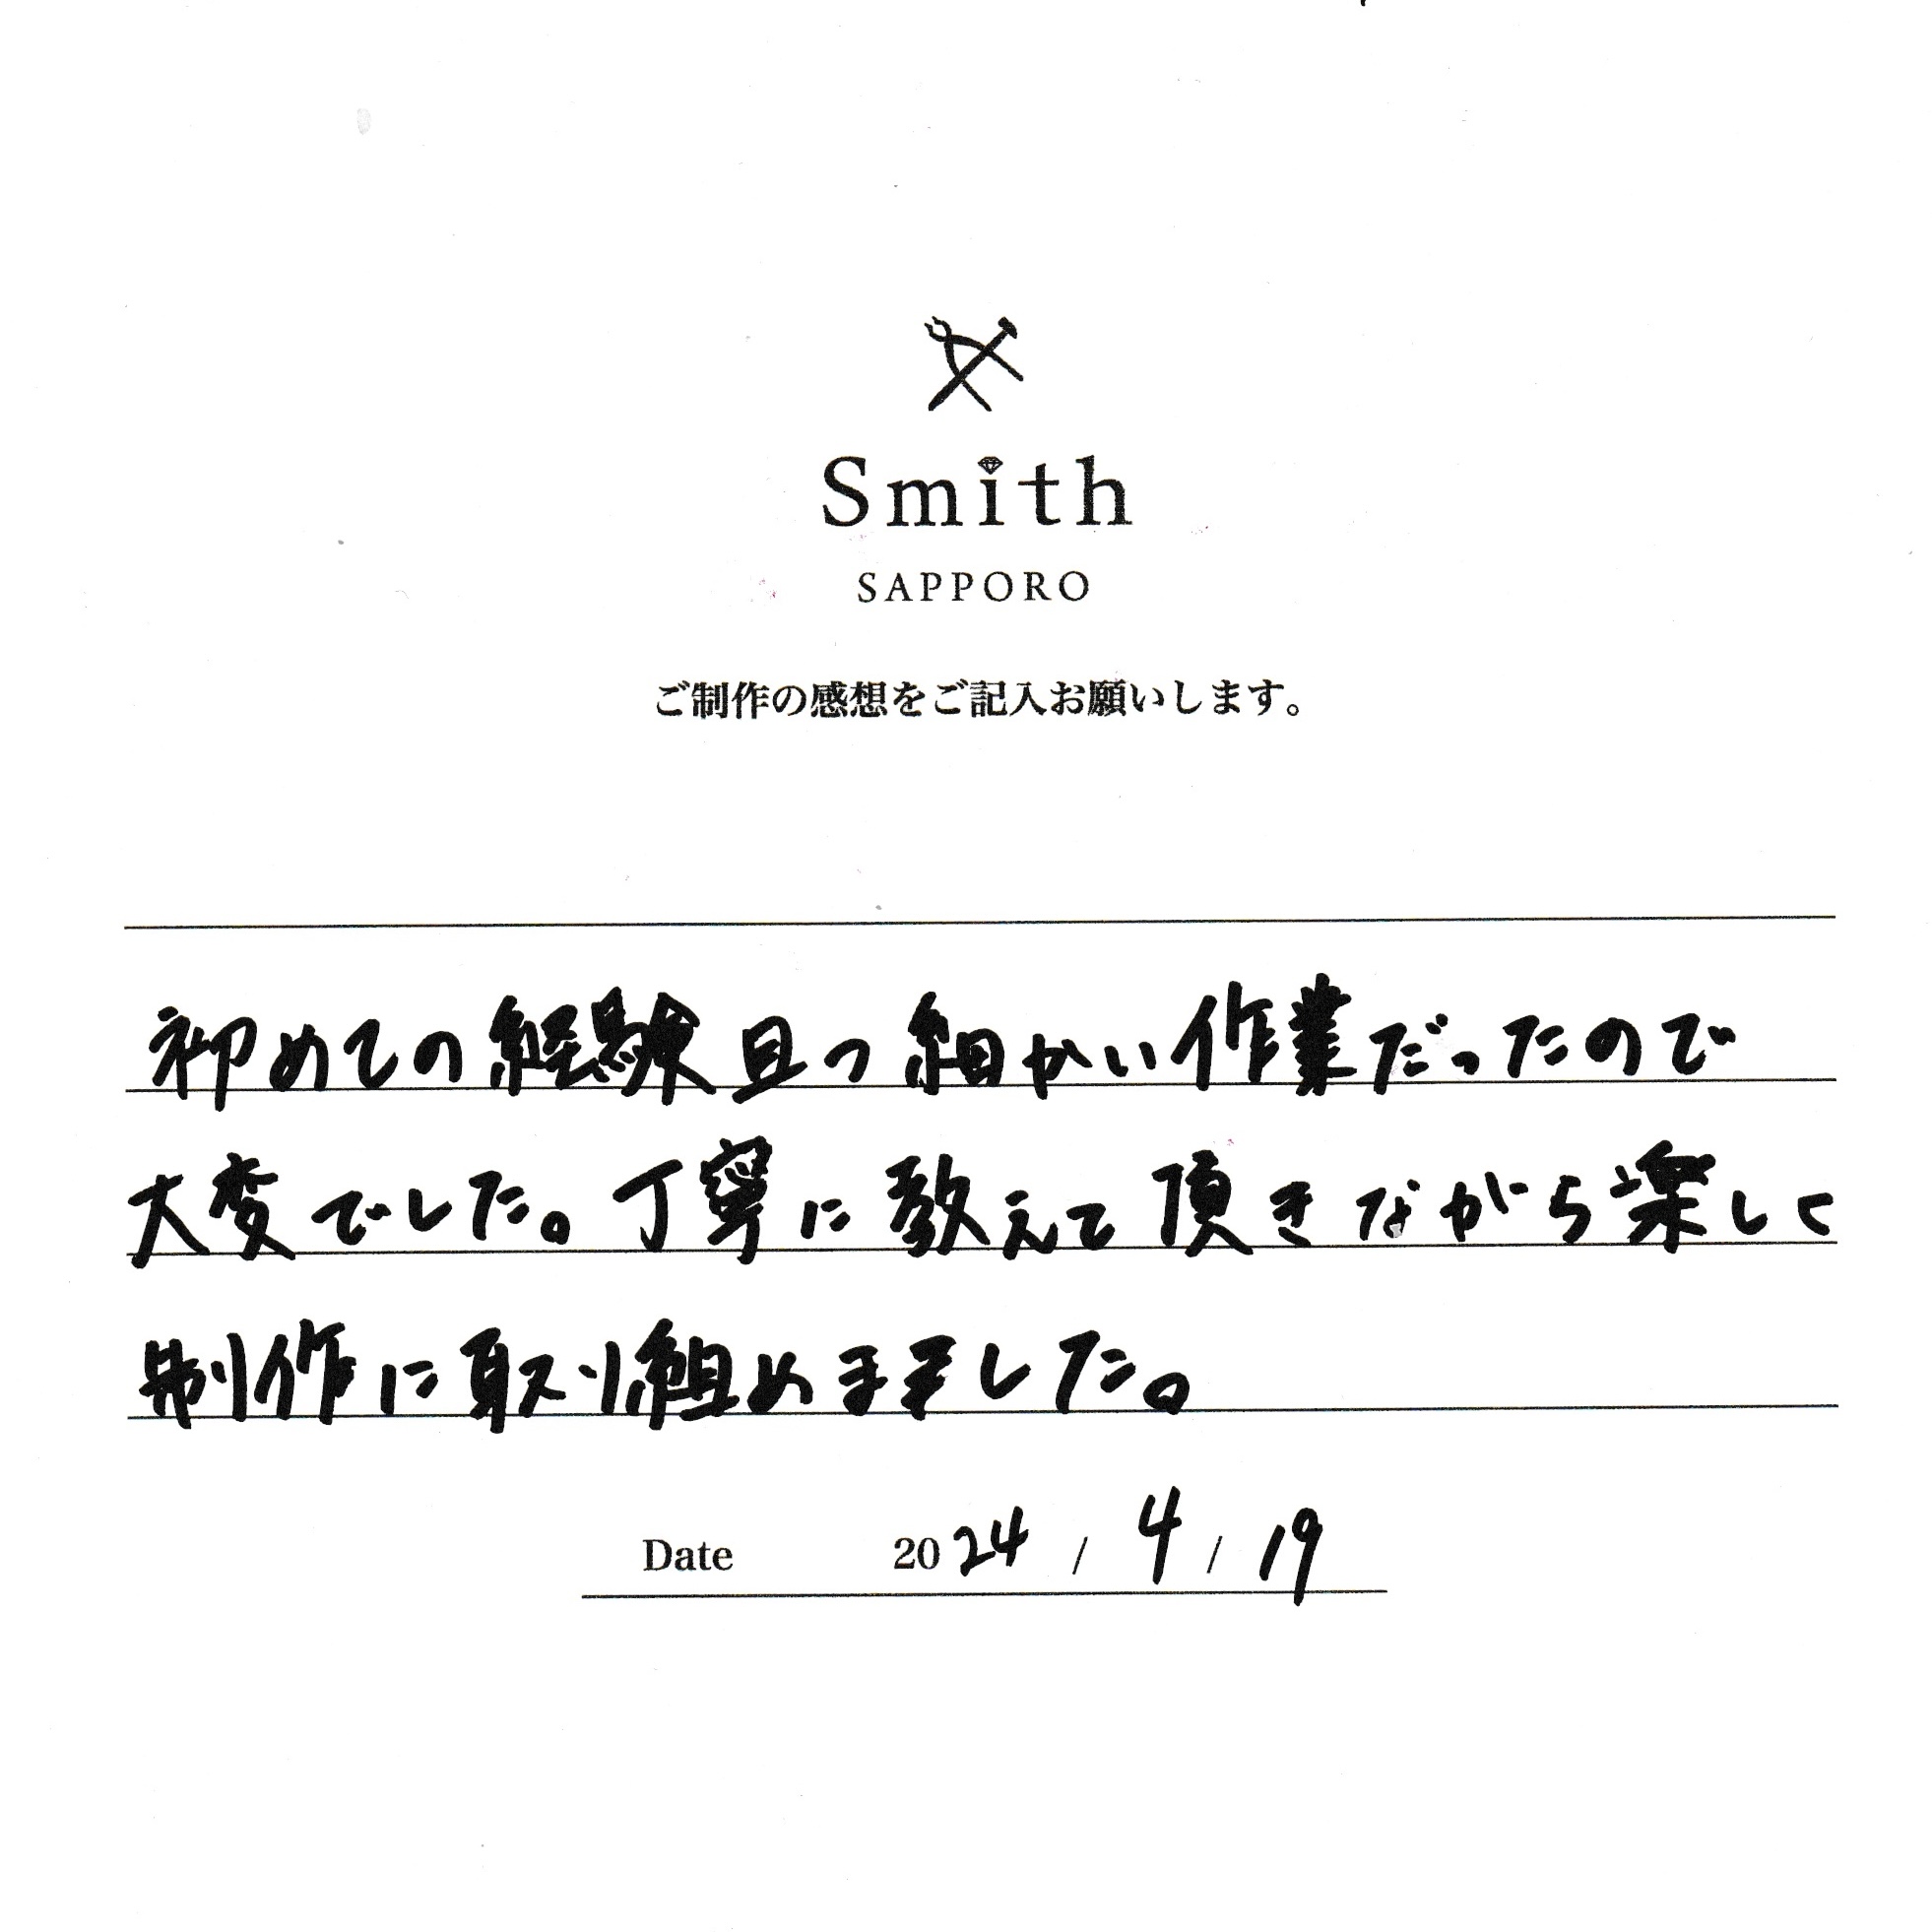 Smith
SAPPORO
ご制作の感想をご記入お願いします。
初めての経験且つ細かい作業だったので
大変でした。丁寧に教えて頂きながら楽しく
制作に取り組めました。
Date 2024 / 4 / 19